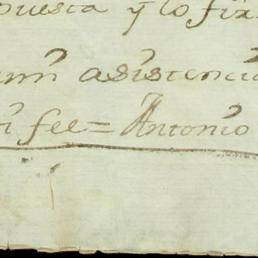 puesta y lo fix
asistencia
fee = Antonio